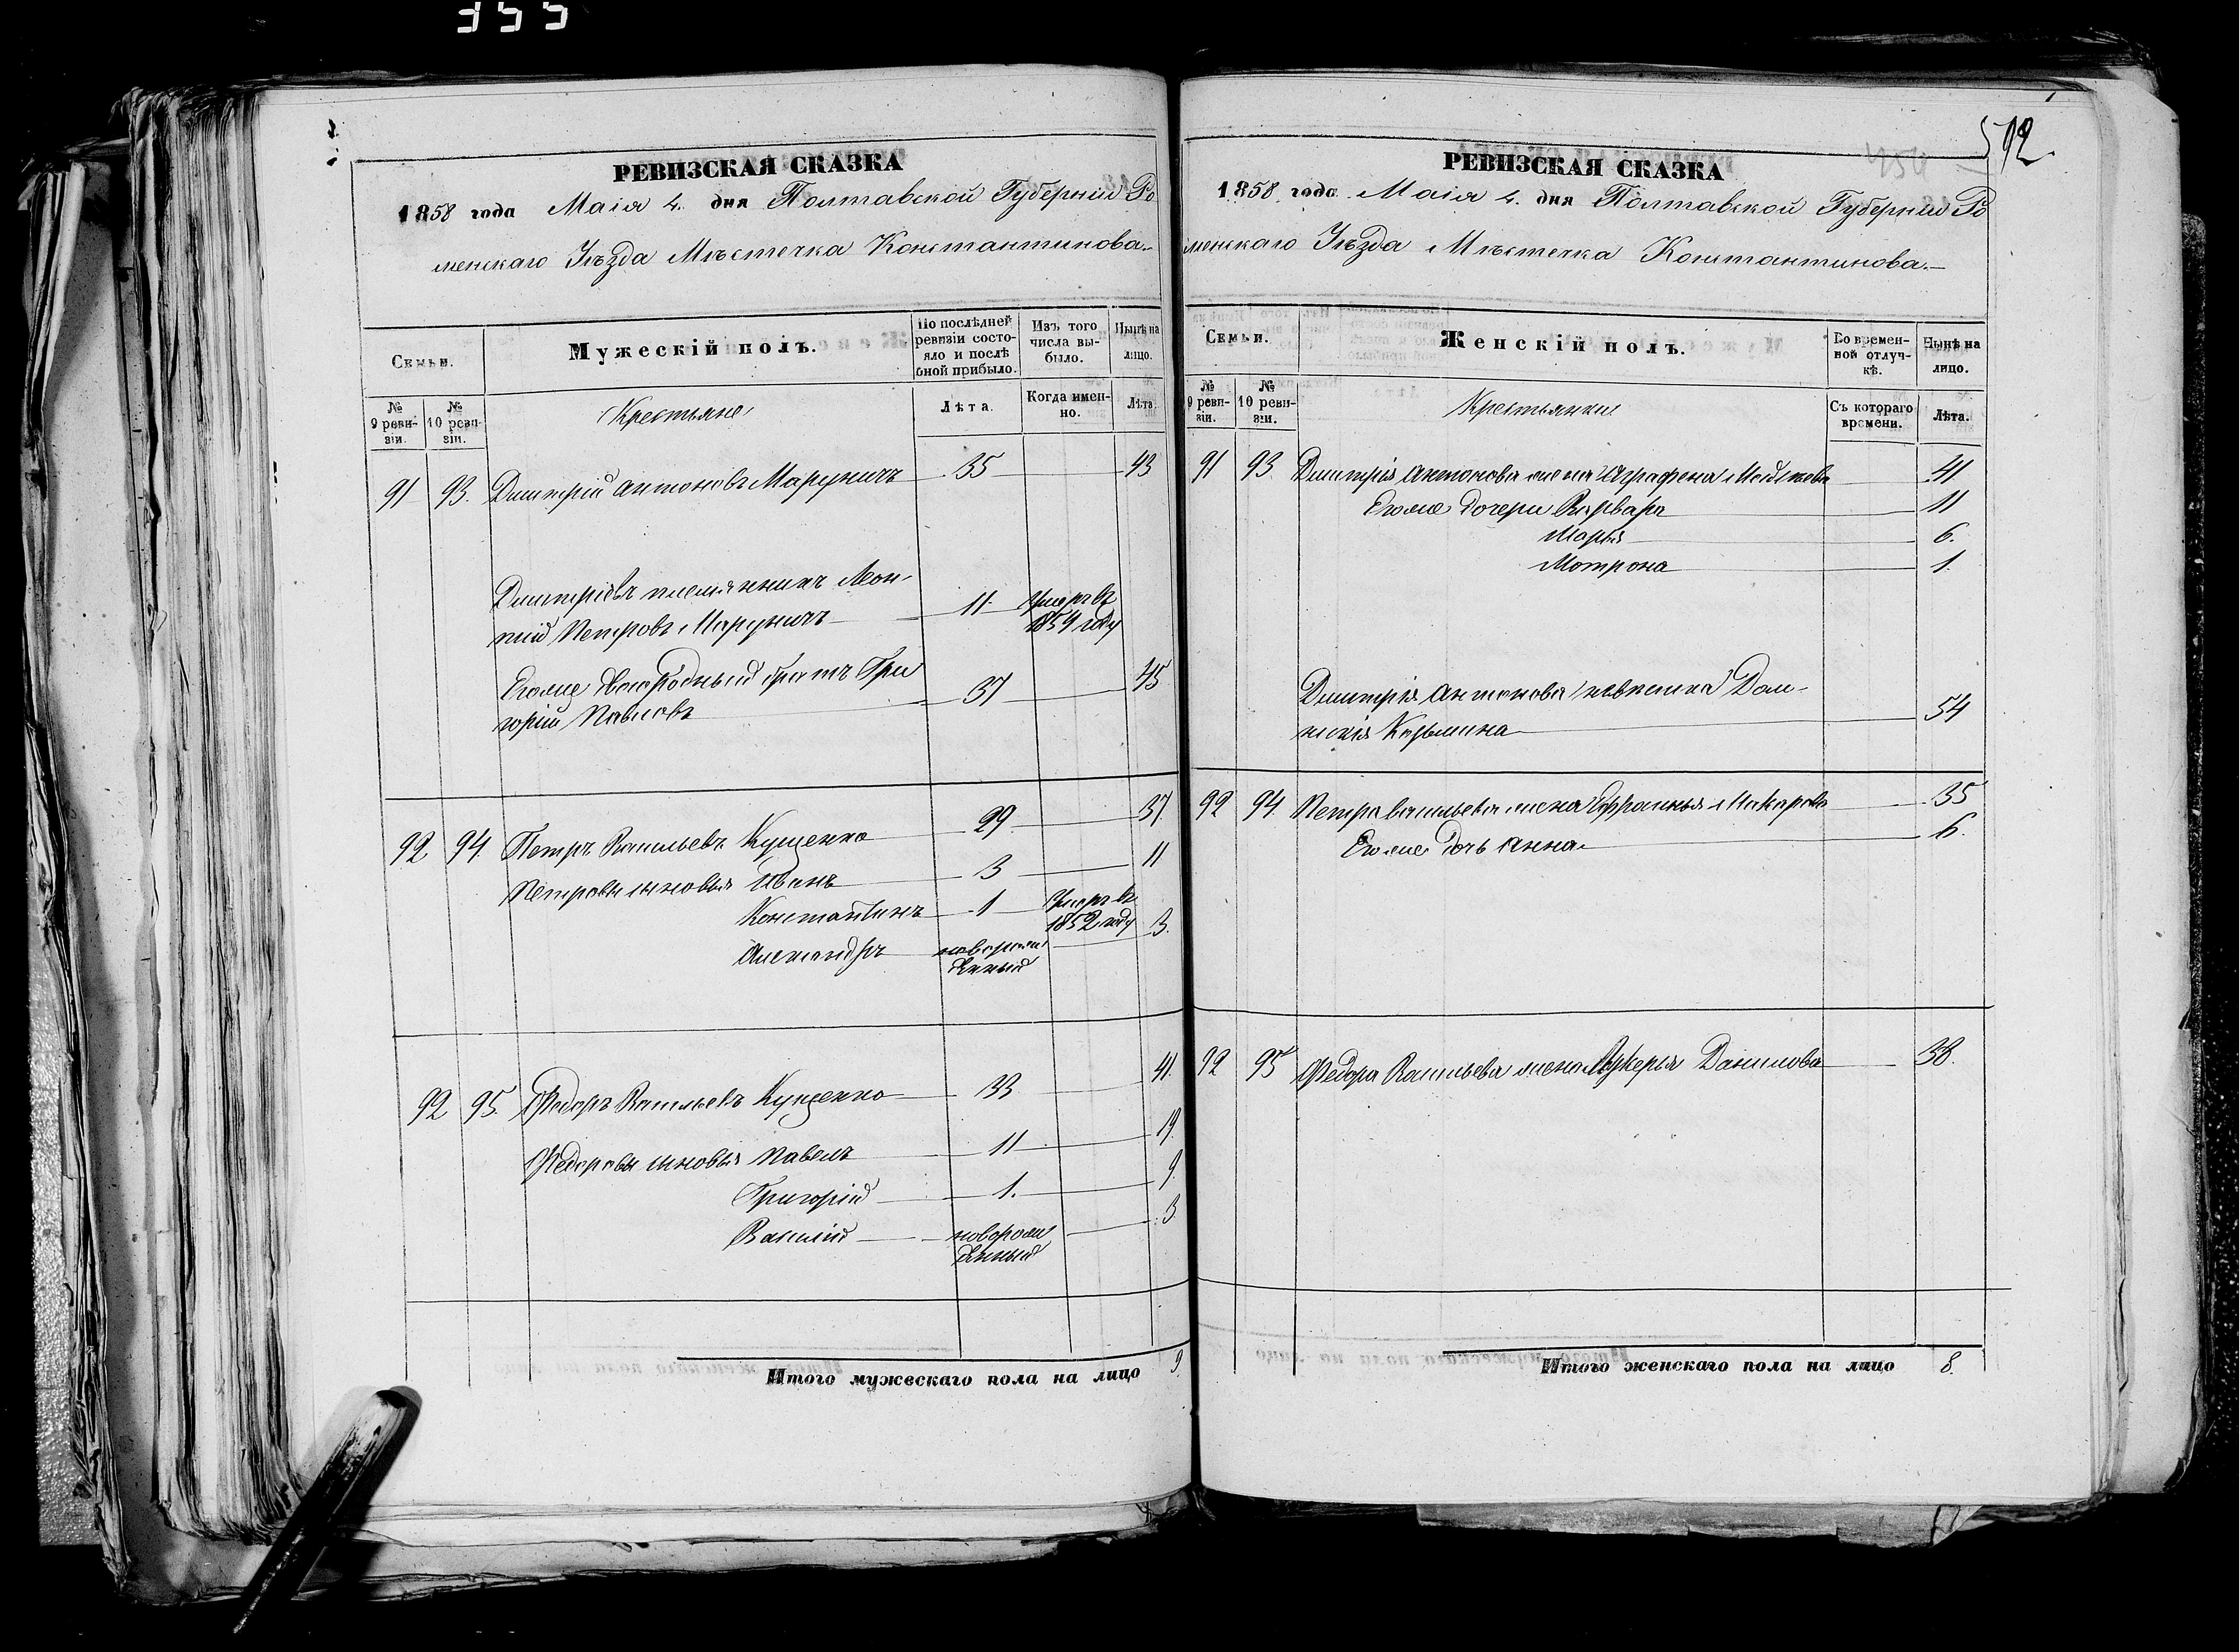 355
РЕВИЗСКАЯ СКАЗКА
1858 года Маія 4. дня Полтавской Губерніи Ро
менскаго Уѣзда Мѣстечка Константинова.
Семьи.
Мужескій полъ.
По послѣдней ревизіи состояло и послѣ оной прибыло.
Изъ того числа выбыло.
Нынѣ на лицо.
№ 9 ревизіи.
№ 10 ревизіи.
Крестьяне
Лѣта.
Когда именно.
Лѣта.
91 93. Дмитрій Антоновъ Маруничъ 35 43
Дмитріевъ племянникъ Леон-
тій Петровъ Маруничъ 11 Умеръ въ 1854 году
Егоже двоюродный братъ Гри
горій Павловъ 37 45
92 94. Петръ Васильевъ Кущенко 29 37.
Петровы сыновья Иванъ 3 11
Константинъ 1 Умеръ въ 1852 году
Александръ новорожденный 3.
92 95. Федоръ Васильевъ Кущенко 33 41.
Федоровы сыновья Павелъ 11 19.
Григорій 1. 9.
Василій новорожденный 3
Итого мужескаго пола на лицо 9.
592.
454
РЕВИЗСКАЯ СКАЗКА
1858 года Маія 4. дня Полтавской Губерніи Ро
менскаго Уѣзда Мѣстечка Константинова.
Семьи.
Женскій полъ.
Во временной отлучкѣ.
Нынѣ на лицо.
№ 9 ревизіи.
№ 10 ревизіи.
Крестьянки
Съ котораго времени.
Лѣта.
91 93 Дмитрія Антонова жена Аграфена 41
Егоже дочери Варвара 11
Марья 6.
Мотрона 1.
Дмитрія Антонова невестка Дом-
никія Козьмина 54
92 94 Петра Васильева жена Ефросинья Макарова 35
Егоже дочь Анна 6.
92 95 Федора Васильева жена Лукерья Данилова 38.
Итого женскаго пола на лицо 8.